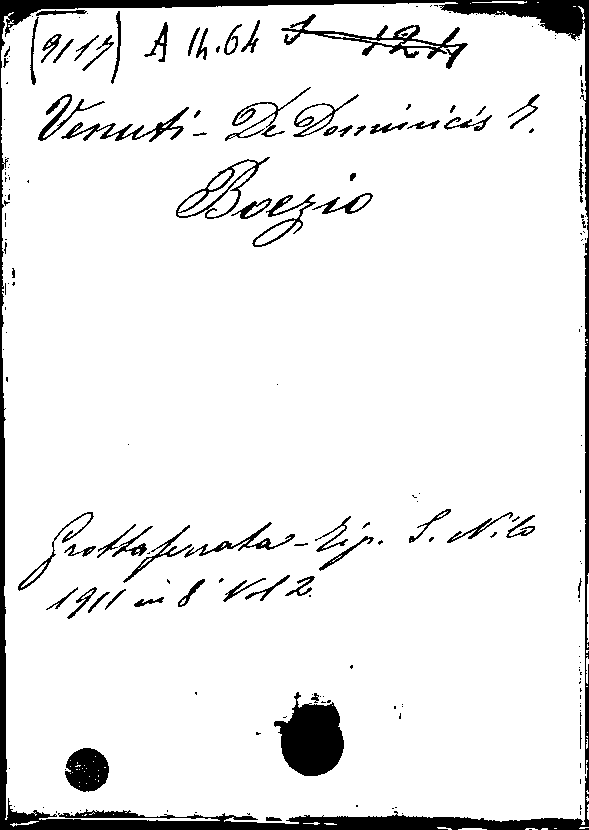 (9117) A 14.64
Venuti - De Dominicis T.
Boezio
Grottaferrata - Tip. S. Nilo
1911 in 8° Vol 2